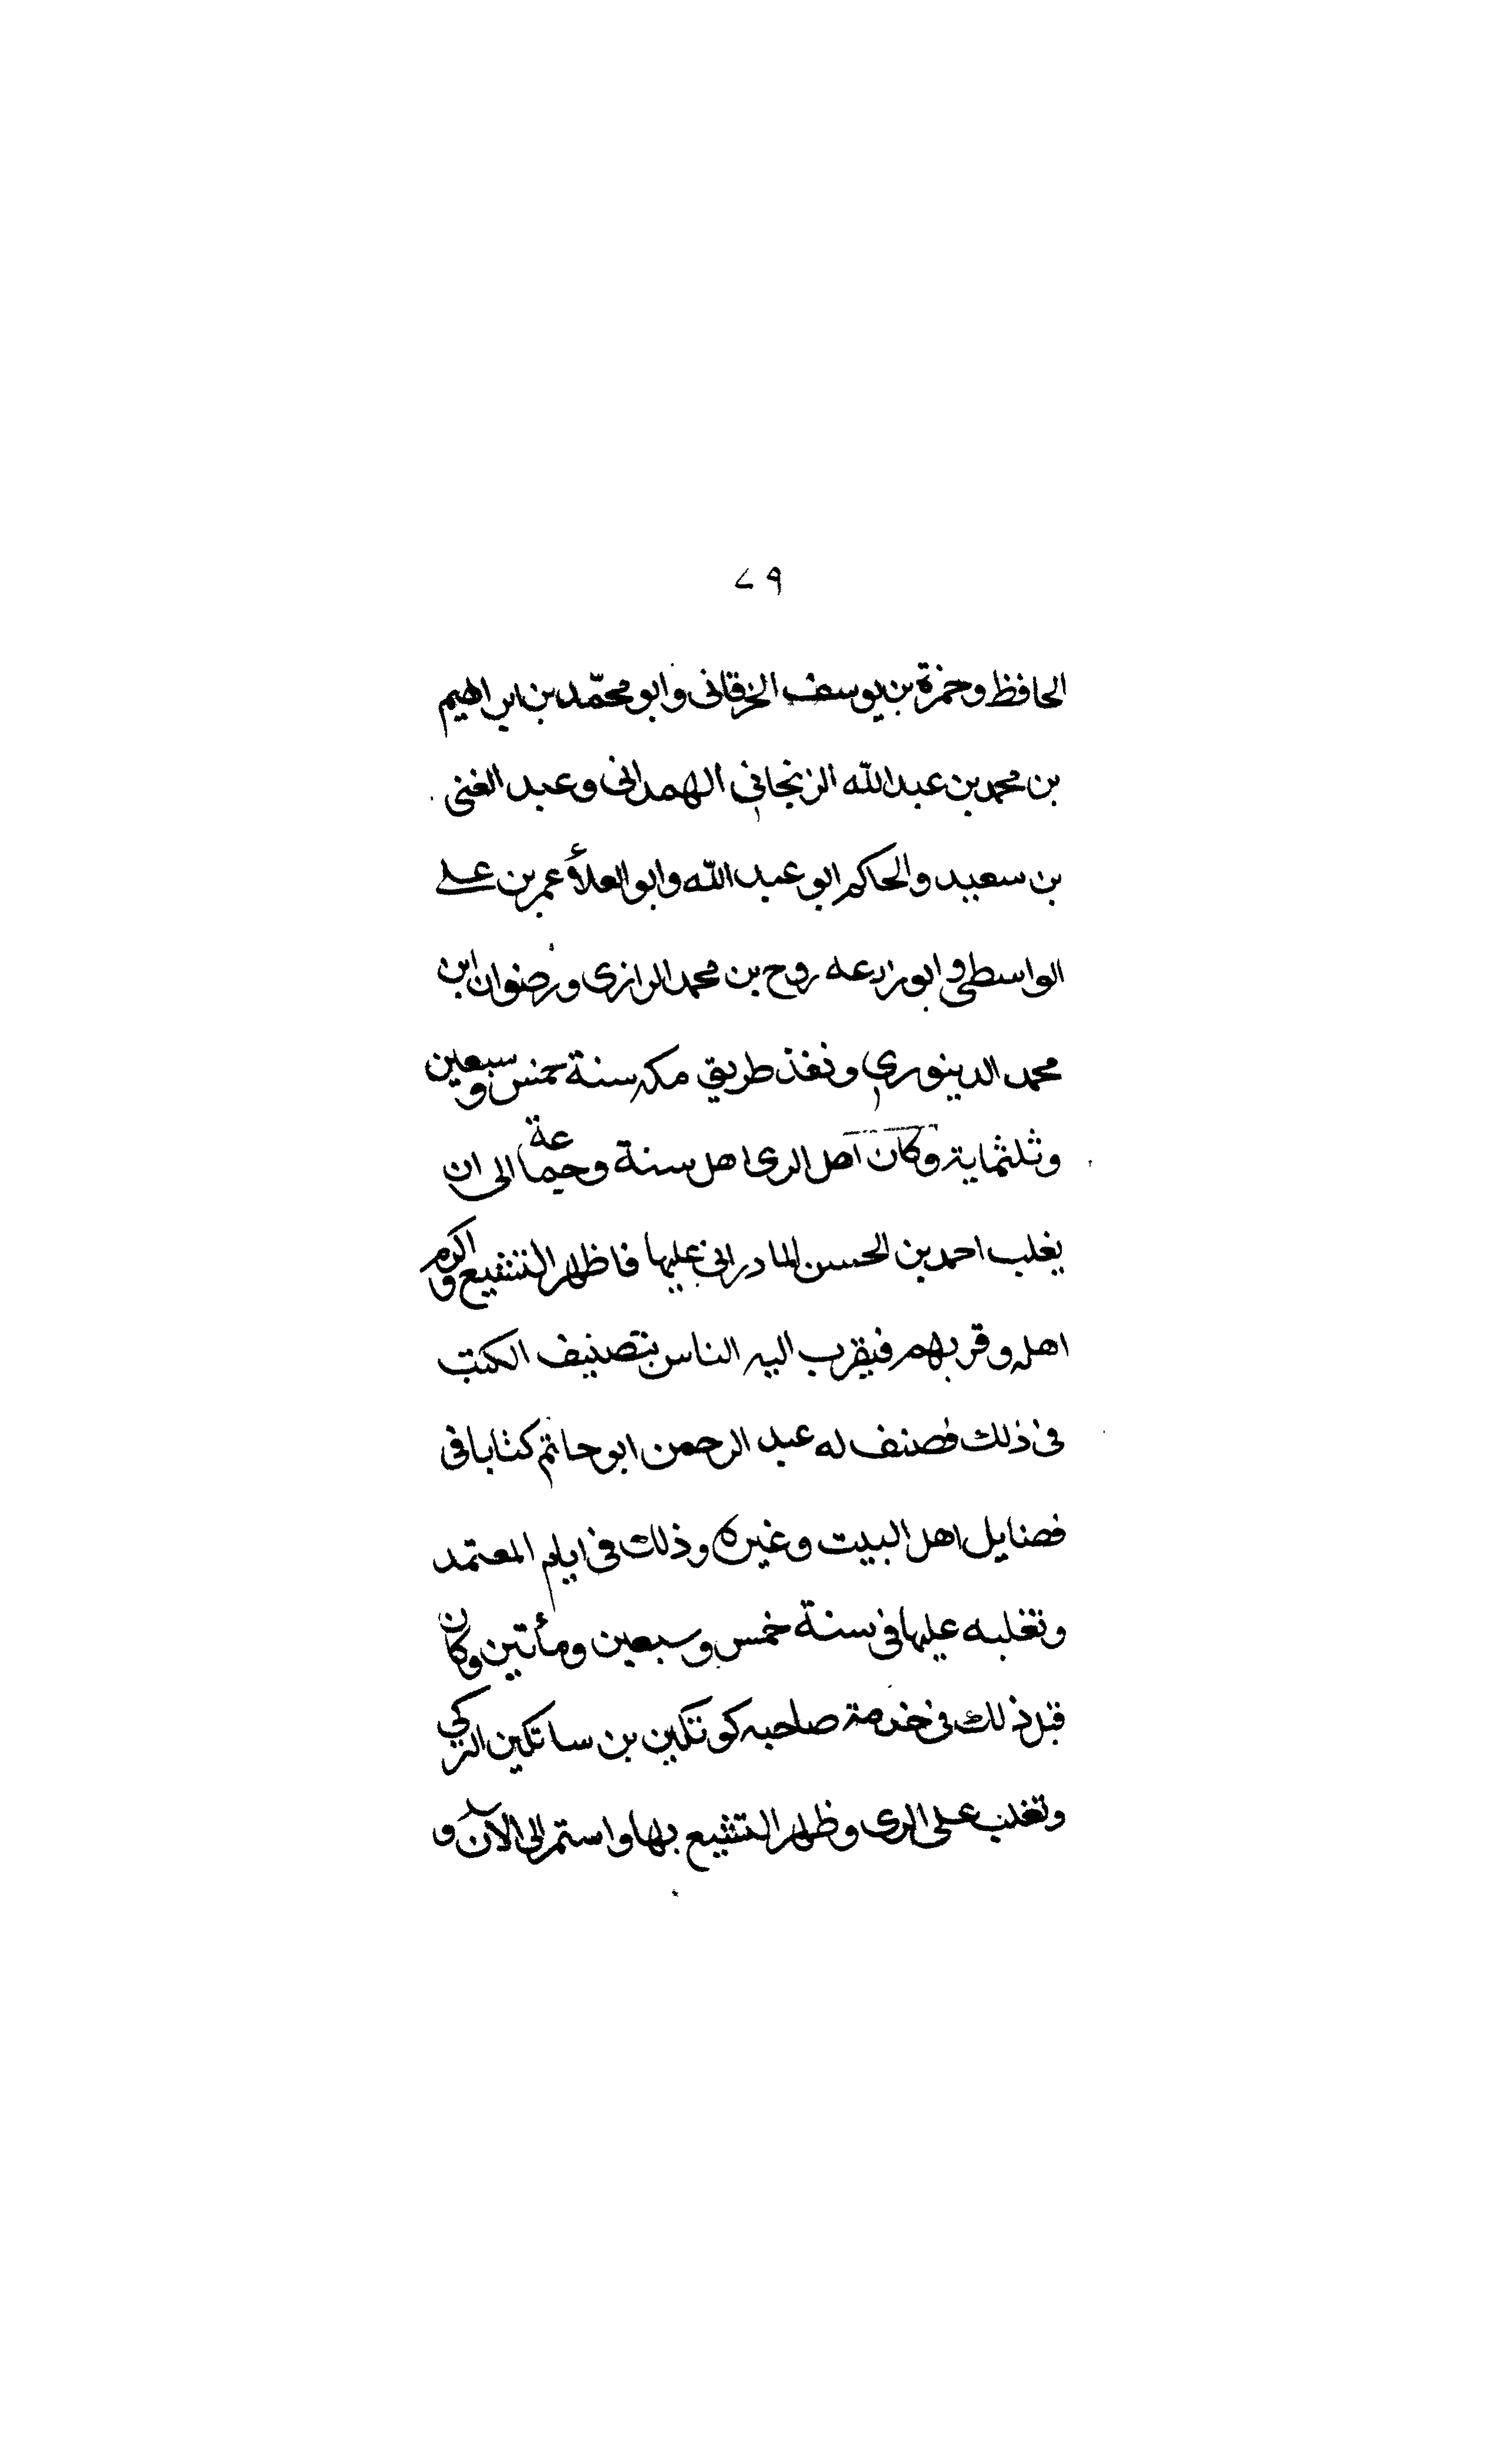 ٧٩
الحافظ وحمزة بن يوسف الخرقانى وابو محمّد بن ابراهيم
بن محمد بن عبدالله الزنجانى الهمدانى وعبد الغنى
بن سعيد والحاكم ابو عبد الله وابو العلأ عمر بن على
الواسطى وابو زرعه روح بن محمد الرازى ورضوان ابن
محمد الدينورى ونفذ طريق مكه سنة خمس وسبعين
وثلثماية وكان اهل الرى اهل سنة وجماعة الى ان
يغلب احمد بن الحسن المادرانى عليها فاظهر التشيع واكرم
اهله وقربهم فيقرب اليه الناس بتصنيف الكتب
فى ذلك فصنف له عبد الرحمن ابو حاتم كتابا فى
فضايل اهل البيت وغيره وذلك فى ايام المعتمد
وتغلبه عليها فى سنة خمس وسبعين ومأتين وكان
قبل ذلك فى خدمة صاحبه كوتكين بن ساتكين التركي
وتغلب على الرى وظهر التشيع بها واستمر الى الآن و